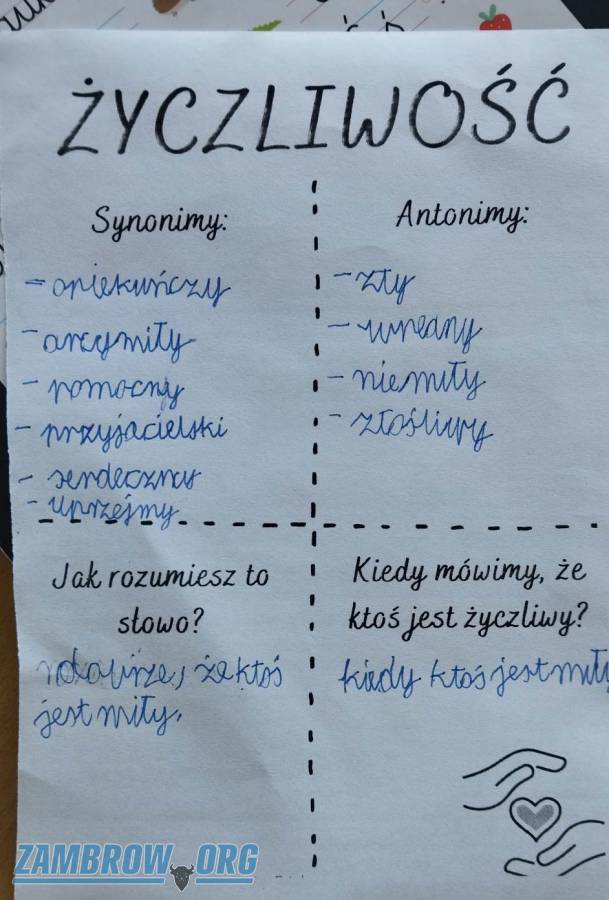 ŻYCZLIWOŚĆ
Synonimy:
- opiekuńczy
- arcymiły
- pomocny
- przyjacielski
- serdeczny
- uprzejmy
Antonimy:
- zły
- wredny
- niemiły
- złośliwy
Jak rozumiesz to
słowo?
dobrze, że ktoś
jest miły.
Kiedy mówimy, że
ktoś jest życzliwy?
kiedy ktoś jest miły
ZAMBROW.ORG